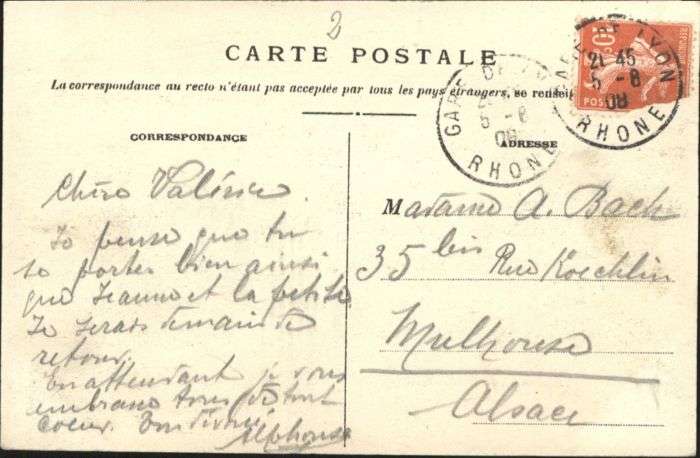 2
CARTE POSTALE
La correspondance au recto n'étant pas acceptée par tous les pays étrangers, se renseil
CORRESPONDANCE
Chère Valérie
Je pense que tu
te portes bien ainsi
que Jeanne et la petite.
Je serais demain de
retour.
En attendant je vous
embrasse tous de tout
coeur. Ton dévoué
Alphonse
ADRESSE
Madame A. Bach
35 bis Rue Koechlin
Mulhouse
Alsace
GARE DE LYON
21 45
5 - 8
08
RHONE
GARE DE LY
5 - 8
08
RHONE
10
POSTES